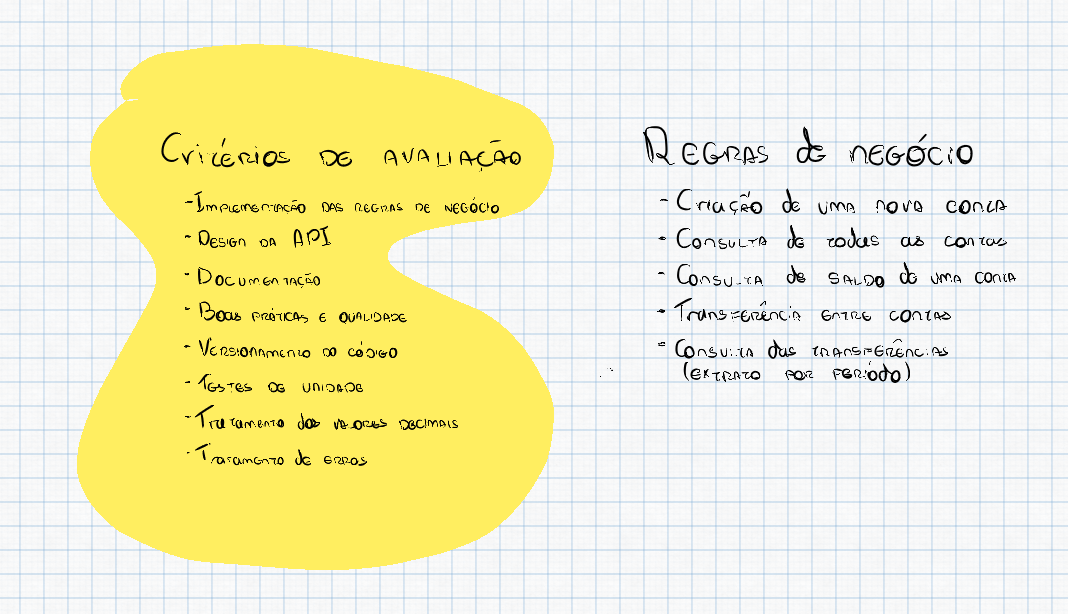 Critérios de avaliação
- Implementação das regras de negócio
- Design da API
- Documentação
- Boas práticas e qualidade
- Versionamento do código
- Testes de unidade
- Tratamento dos valores decimais
- Tratamento de erros
Regras de negócio
- Criação de uma nova conta
- Consulta de todas as contas
- Consulta de saldo de uma conta
- Transferência entre contas
- Consulta das transferências
(extrato por período)